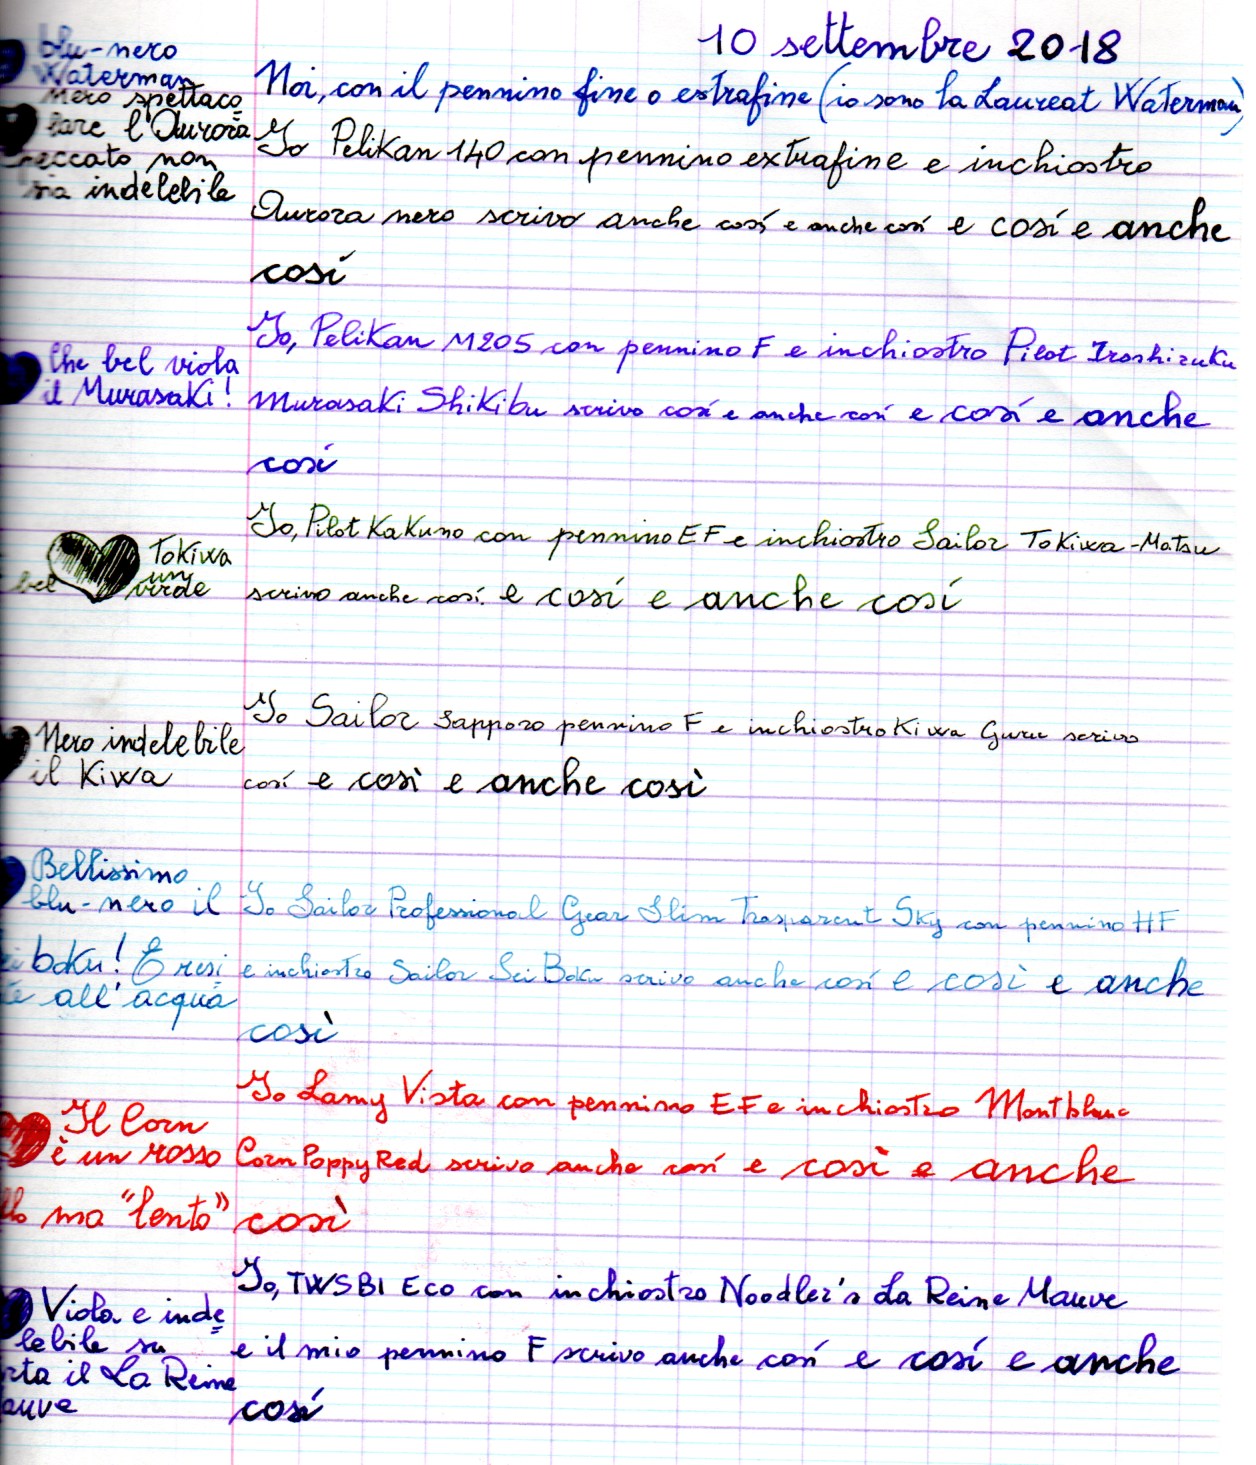 10 settembre 2018
blu-nero
Waterman
Noi, con il pennino fine o extrafine (io sono la Laureat Waterman)
nero spettaco
lare l'Aurora
Io Pelikan 140 con pennino extrafine e inchiostro
peccato non
sia indelebile
Aurora nero scrivo anche cosí e anche cosí e cosí e anche
cosí
Io, Pelikan M205 con pennino F e inchiostro Pilot Iroshizuku
Che bel viola
il Murasaki!
Murasaki Shikibu scrivo cosí e anche cosí e cosí e anche
cosí
Io, Pilot Kakuno con pennino EF e inchiostro Sailor Tokiwa-Matsu
Tokiwa
un
bel verde
scrivo anche cosí. e cosí e anche cosí
Io Sailor Sapporo pennino F e inchiostro Kiwa Guru scrivo
Nero indelebile
il Kiwa
cosí e così e anche così
Bellissimo
blu-nero il
Io Sailor Professional Gear Slim Trasparent Sky con pennino HF
boku! È resi
e inchiostro Sailor Sei Boku scrivo anche cosí e così e anche
te all'acqua
così
Io Lamy Vista con pennino EF e inchiostro Montblanc
Il Corn
è un rosso
Corn Poppy Red scrivo anche cosí e così e anche
ma "lento"
così
Io, TWSBI Eco con inchiostro Noodler's La Reine Mauve
Viola e inde
lebile su
e il mio pennino F scrivo anche cosí e cosí e anche
rta il La Reine
auve
cosí